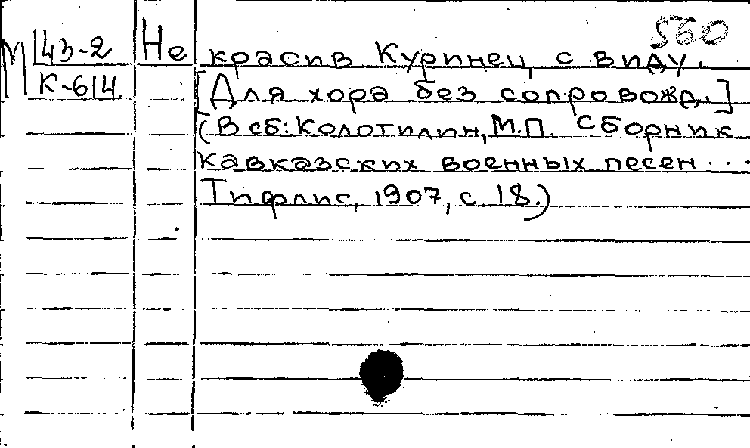 560
М 43-2
К-614
Не красив Куринец с виду.
[Для хора без сопровожд.]
(В сб: Колотилин, М.П. Сборник
кавказских военных песен...
Тифлис, 1907, с. 18.)